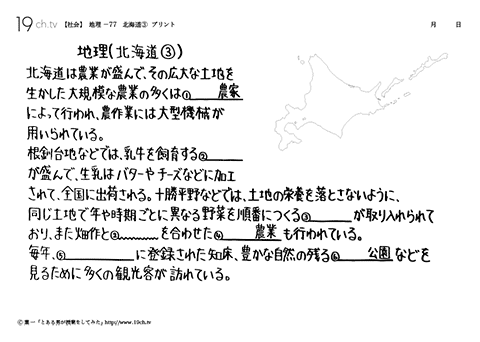 19ch.tv 【社会】 地理 －77 北海道③ プリント 月 日
地理(北海道③)
北海道は農業が盛んで、その広大な土地を
生かした大規模な農業の多くは① 農家
によって行われ、農作業には大型機械が
用いられている。
根釧台地などでは、乳牛を飼育する②
が盛んで、生乳はバターやチーズなどに加工
されて、全国に出荷される。十勝平野などでは、土地の栄養を落とさないように、
同じ土地で年や時期ごとに異なる野菜を順番につくる③ が取り入れられて
おり、また畑作と② を合わせた④ 農業も行われている。
毎年、⑤ に登録された知床、豊かな自然の残る⑥ 公園などを
見るために多くの観光客が訪れている。
Ⓒ 葉一「とある男が授業をしてみた」http://www.19ch.tv